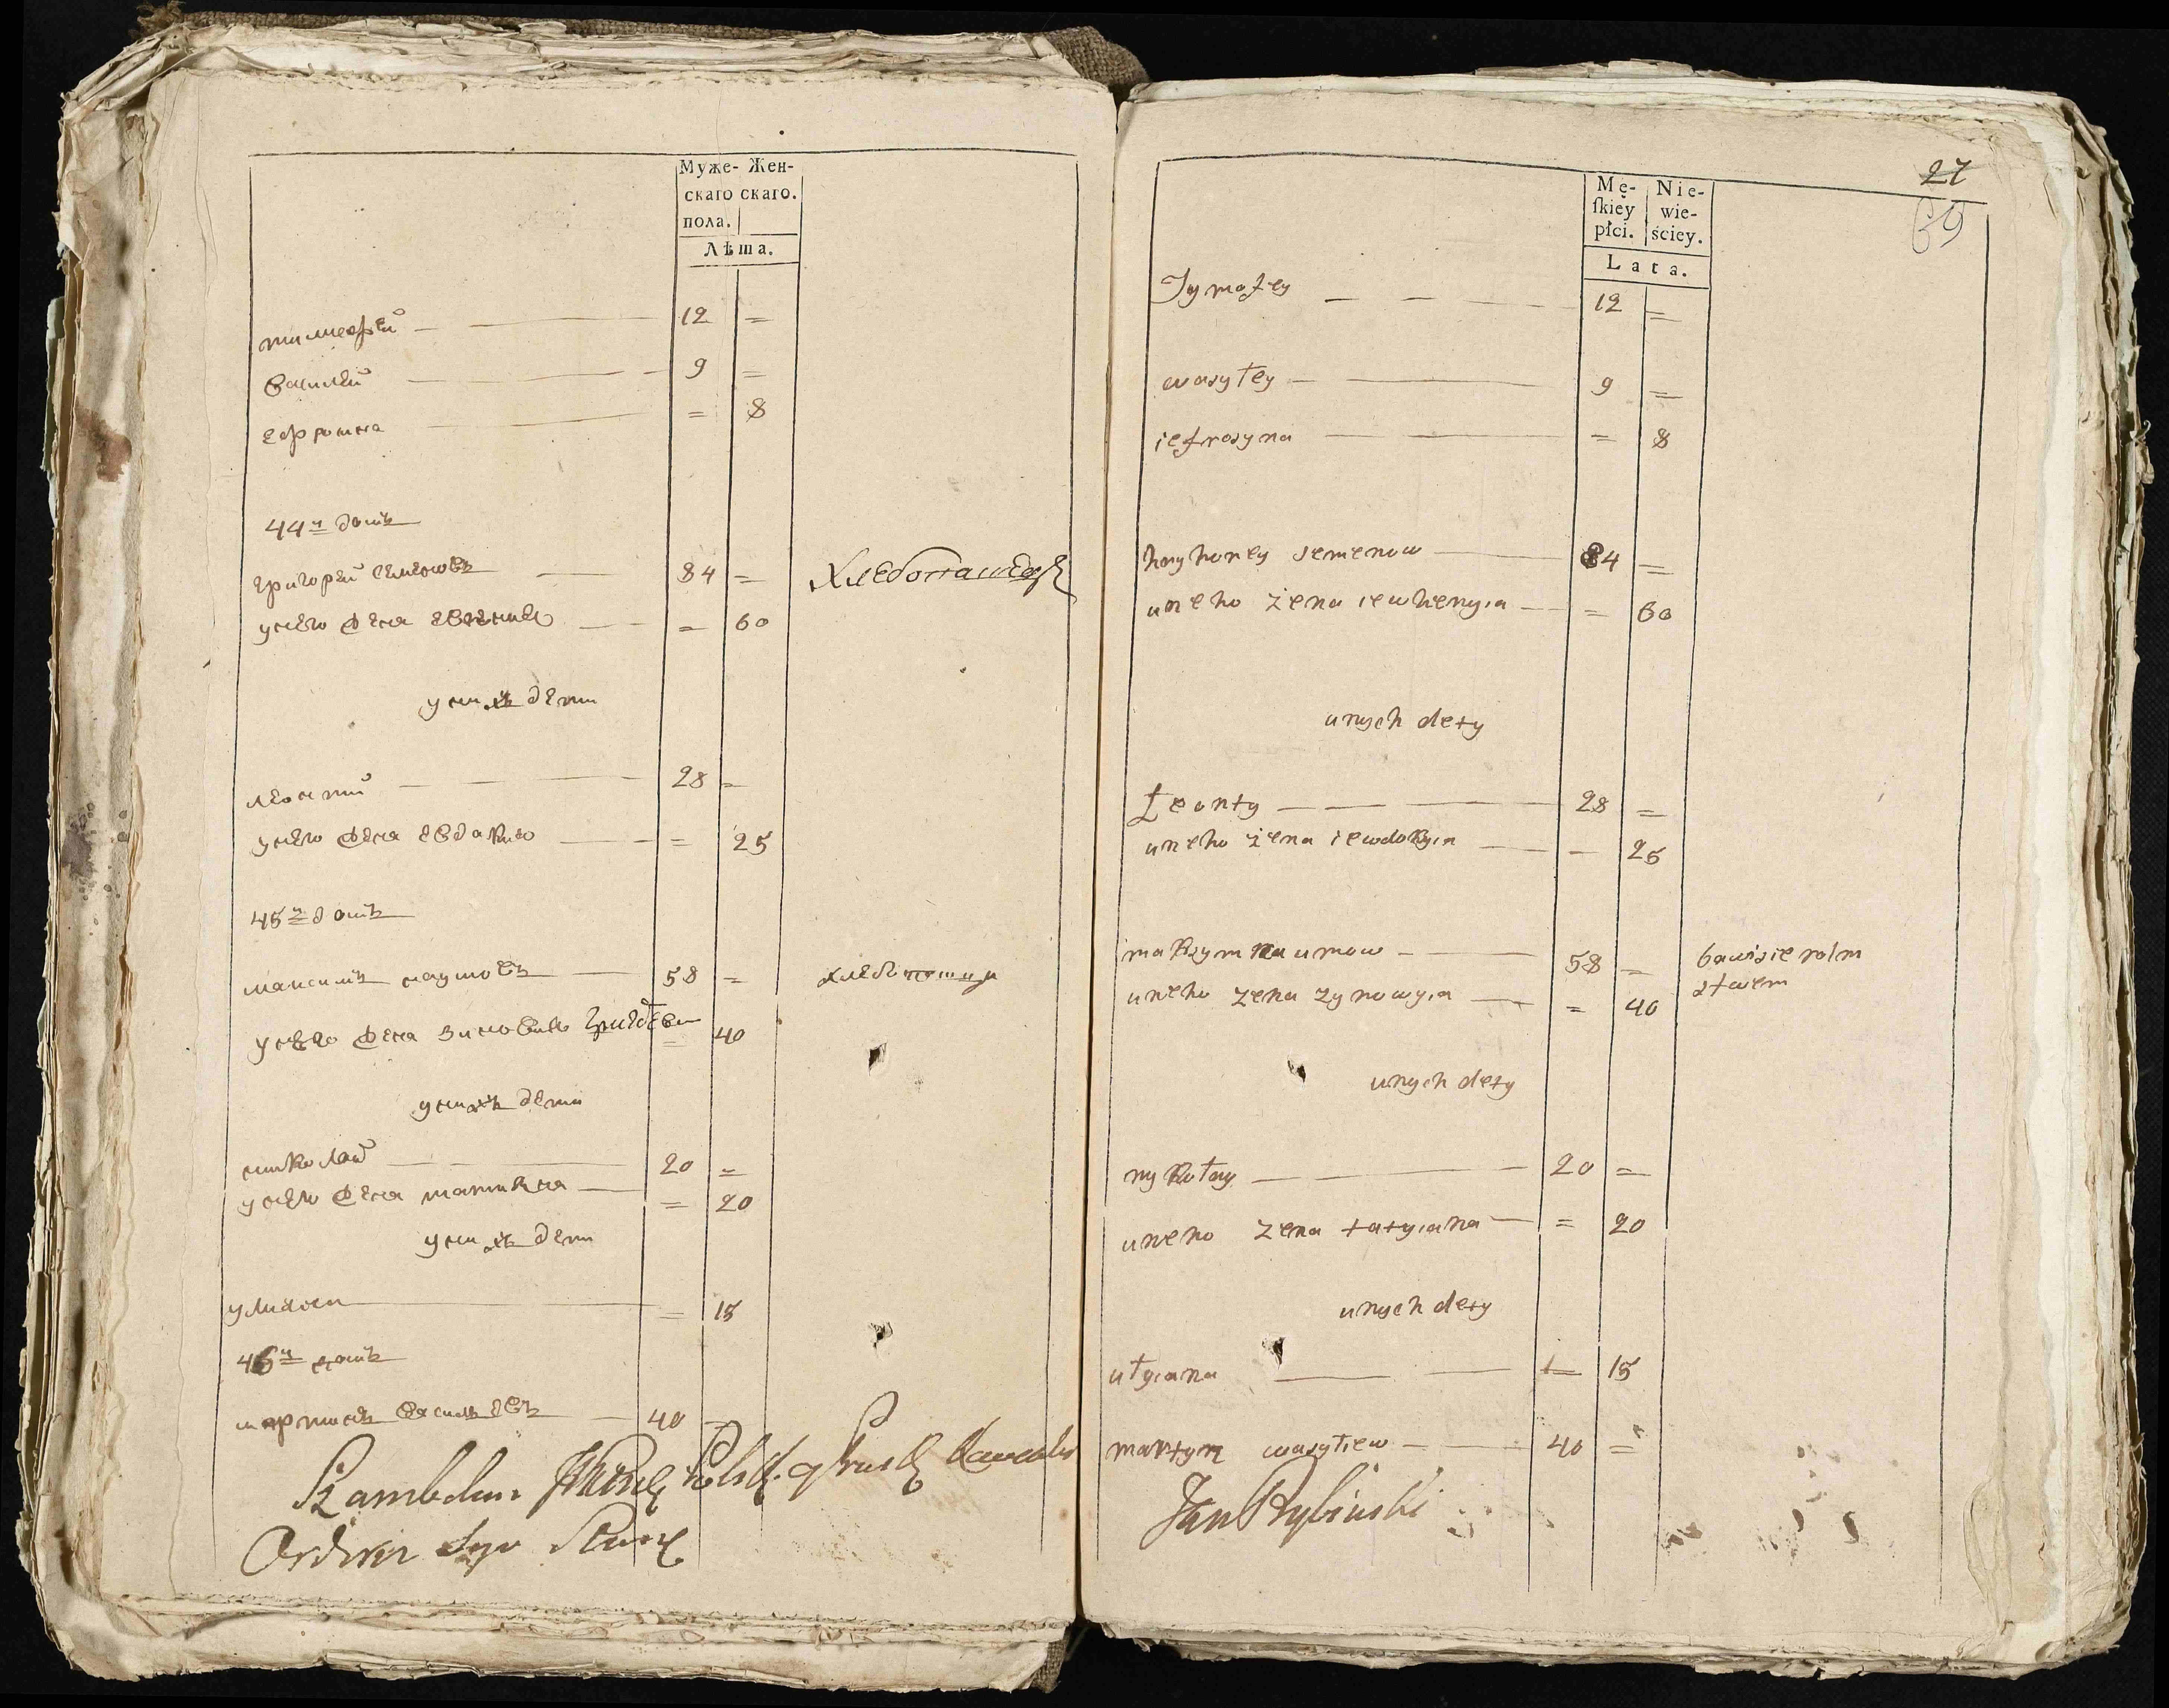 Муже- Жен-
скаго скаго.
пола.
Лѣта.
тимофѣй — 12 =
василѣй — 9 =
ефросина — = 8
44й домъ
григорѣй семеновъ — 84 = Хлебопашецъ
унего жена евгения — = 60
унихъ дети
леонтий — 28 =
унего жена евдокия — = 25
45й домъ
максимъ наумовъ — 58 = хлебопашец
унего жена зиновия = 40
унихъ дети
николай — 20 =
унего жена татияна — = 20
унихъ дети
улияна — = 15
46й домъ
мартинъ василевъ — 40
27
69
Mę- Nie-
ſkiey wie-
płci. ściey.
Lata.
Tymofey — 12 =
wasyłey — 9 =
iefrosyna — = 8
hryhorey semenow — 84 =
uneho żena iewhenyia — = 60
unych dety
Łeonty — 28 =
uneho żena iewdokyia — = 25
maksym naumow — 58 = bawisie roln
uneho żena zynowyia — = 40 stwem
unych dety
nykołay — 20 =
uneho żena tatyiana — = 20
unych dety
ułyiana — 15
martyn wasyłiew — 40 =
Jan Rybiński